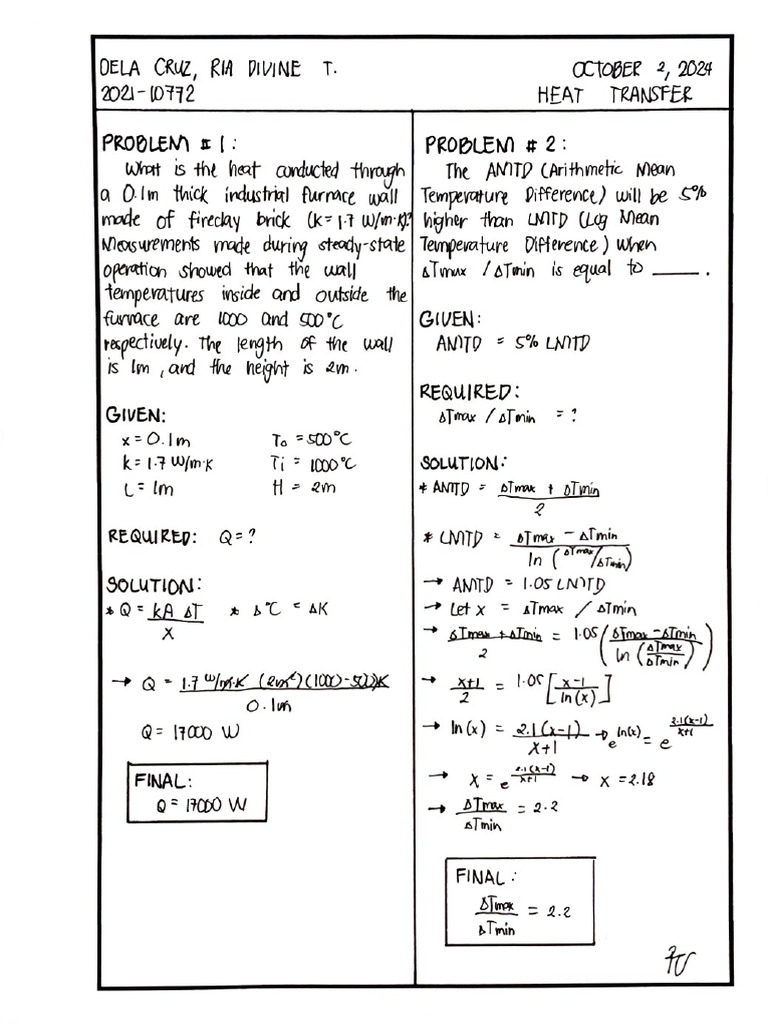 DELA CRUZ, RIA DIVINE T.
2021-10772
OCTOBER 2, 2024
HEAT TRANSFER
PROBLEM # 1:
What is the heat conducted through
a 0.1m thick industrial furnace wall
made of fireclay brick (k = 1.7 W/m·K)?
Measurements made during steady-state
operation showed that the wall
temperatures inside and outside the
furnace are 1000 and 500°C
respectively. The length of the wall
is 1m, and the height is 2m.
GIVEN:
x = 0.1m To = 500°C
k = 1.7 W/m·K Ti = 1000°C
L = 1m H = 2m
REQUIRED: Q = ?
SOLUTION:
* Q = kA ΔT / x * Δ°C = ΔK
→ Q = 1.7 W/m·K (2m²)(1000-500)K / 0.1m
Q = 17000 W
FINAL:
Q = 17000 W
PROBLEM # 2:
The AMTD (Arithmetic Mean
Temperature Difference) will be 5%
higher than LMTD (Log Mean
Temperature Difference) when
ΔTmax / ΔTmin is equal to ____.
GIVEN:
AMTD = 5% LMTD
REQUIRED:
ΔTmax / ΔTmin = ?
SOLUTION:
* AMTD = ΔTmax + ΔTmin / 2
* LMTD = ΔTmax - ΔTmin / ln (ΔTmax/ΔTmin)
→ AMTD = 1.05 LMTD
→ Let x = ΔTmax / ΔTmin
→ ΔTmax + ΔTmin / 2 = 1.05 (ΔTmax - ΔTmin / ln (ΔTmax/ΔTmin))
→ x+1 / 2 = 1.05 [x-1 / ln(x)]
→ ln(x) = 2.1(x-1) / x+1 → e^ln(x) = e^2.1(x-1)/x+1
→ x = e^2.1(x-1)/x+1 → x = 2.18
→ ΔTmax / ΔTmin = 2.2
FINAL:
ΔTmax / ΔTmin = 2.2